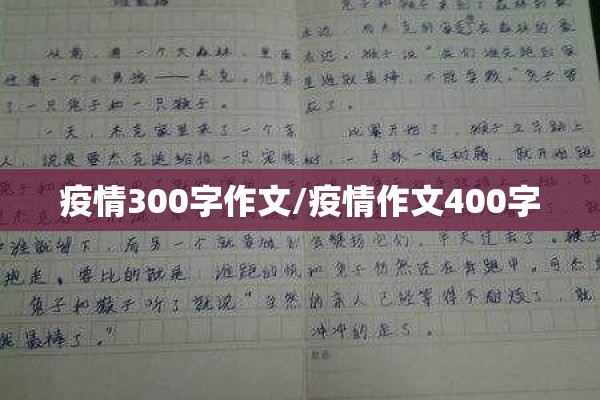 从前，有一个大森林，里面
住着一个小男孩——杰克。他养
了一只兔子和一只猴子。
一天，杰克家里来了一个亲
人，说是要杰克送给他一只宠物
疫情300字作文/疫情作文400字
谁就留下，而另一个就要被别
抱走。要比的就是，谁跑的快
兔子和猴子听了就说“当然
我最棒了。”
兔子和猴子来到了森林的最
左边，而杰克的家是在森林的最
右边。猴子说“我们谁先跑到家
里谁就最棒，不能。”兔子答
应了。
比赛开始了，猴子立马跳上
树，一手抓一根树藤，就开始跑
它们，半天过去了。猴子
和兔子仍然还在奔跑中。可杰克
的亲人已经等得不耐烦了，就
冲冲的走了。